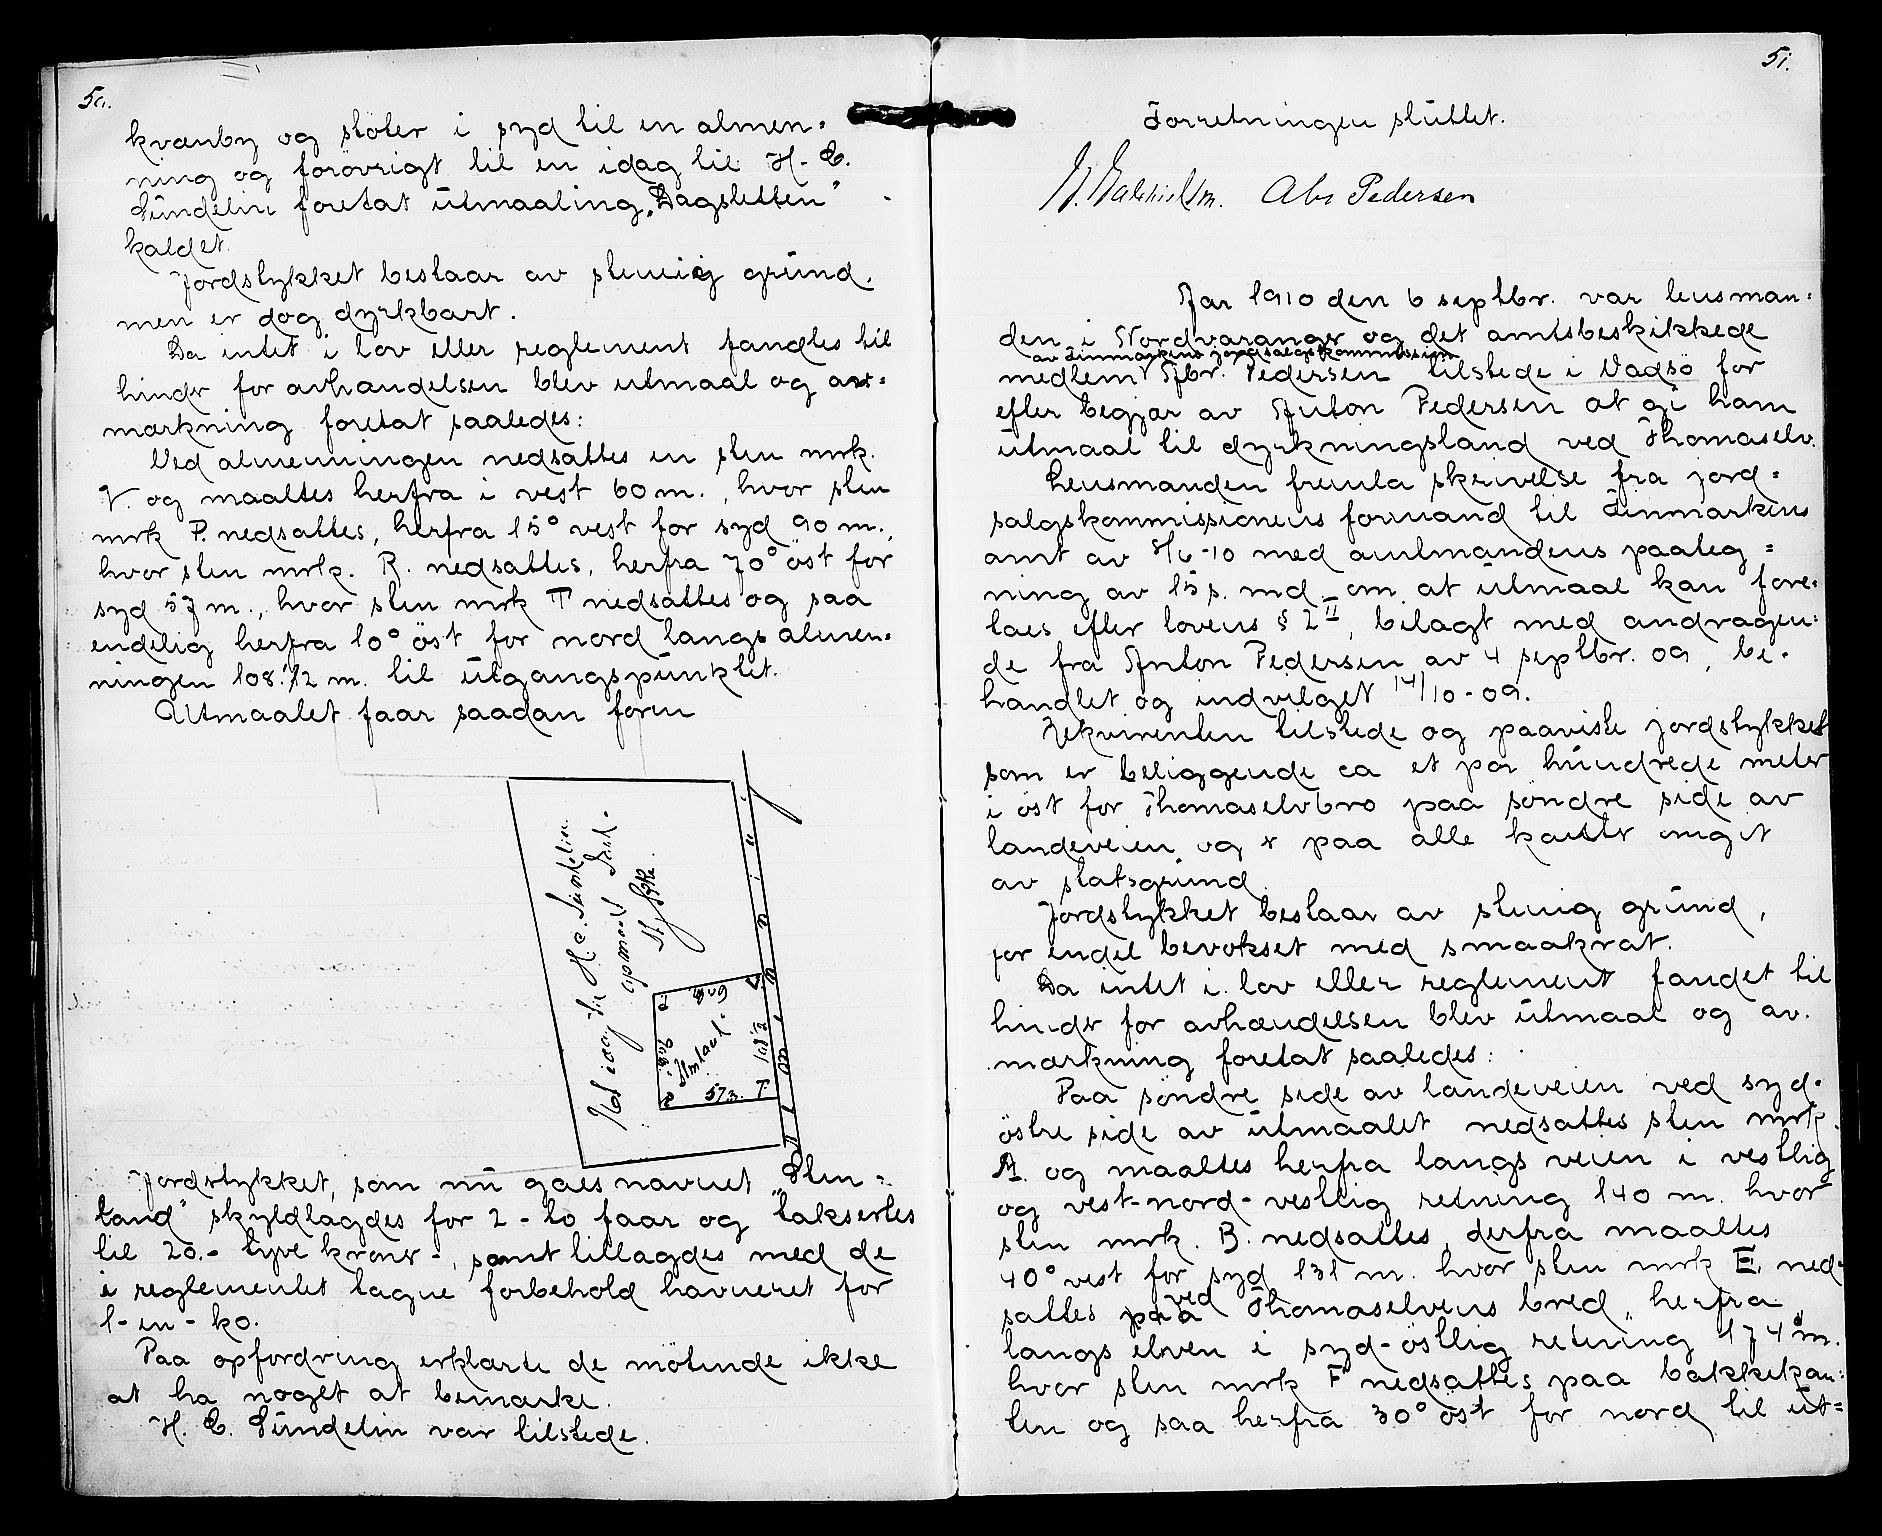 50.
kvænby og støter i syd til en almen=
ning og forøvrigt til en idag til H. E.
Sundelin foretat utmaaling „Dagsletten"
kaldet.
Jordstykket bestaar av stenig grund.
men er dog dyrkbart.
Da intet i lov eller reglement fandtes til
hinder for avhændelsen blev utmaal og av=
merkning foretat saaledes:
Ved almenningen nedsattes en sten mrk.
V. og maaltes herfra i vest 60 m., hvor sten
mrk P. nedsattes, herfra 15° vest for syd 90 m.,
hvor sten mrk. R. nedsattes, herfra 70° öst for
syd 57 m., hvor sten mrk T nedsattes og saa
endelig herfra 10° öst for nord langs almen=
ningen 108.1/2 m. til utgangspunktet.
Utmaalet faar saadan form
Det idag til H. E. Sundelin
opmaalt Jord-
stykke.
Almenning
V
60 m.
P
90 m.
Stenland.
108 1/2
R
57 m.
T
Jordstykket, som nu gaes navnet „Sten=
land" skyldlagdes for 2 - to faar og taksertes
til 20.- tyve kroner -, samt tillagdes med de
i reglementet tagne forbehold havneret for
1 - en - ko.
Paa opfordring erklærte de mötende ikke
at ha noget at bemærke.
H. E. Sundelin var tilstede.
51.
Forretningen sluttet.
Abr Pedersen
Aar 1910 den 6 septbr. var lensman=
den i Nordvaranger og det amtsbeskikkede
av Finmarkens jordsalgskommission
medlem Abr. Pedersen tilstede i Vadsö for
efter begjær av Anton Pedersen at gi ham
utmaal til dyrkningsland ved Thomaselv.
Lensmanden fremla skrivelse fra jord=
salgskommissionens formand til Finmarkens
amt av 8/6-10 med amtmandens paateg=
ning av 15 s. md. om at utmaal kan fore=
taes efter lovens § 2 II, bilagt med andragen=
de fra Anton Pedersen av 4 septbr. 09, be-
handlet og indvilget 14/10-09.
Rekvirenten tilstede og paaviste jordstykket
som er beliggende ca et par hundrede meter
i öst for Thomaselvbro paa söndre side av
landeveien og er paa alle kanter omgit
av statsgrund.
Jordstykket bestaar av stenig grund,
for endel bevokset med smaakrat.
Da intet i lov eller reglement fandet til
hinder for avhændelsen blev utmaal og av-
merkning foretat saaledes:
Paa söndre side av landeveien ved syd-
östre side av utmaalet nedsattes sten mrk.
A. og maaltes herfra langs veien i vestlig
og vest-nord-vestlig retning 140 m. hvor
sten mrk. B. nedsattes, derfra maaltes
40° vest for syd 131 m. hvor sten mrk E. ned-
sattes paa ved Thomaselvens bred, herfra
langs elven i syd-östlig retning 174 m.
hvor sten mrk F nedsattes paa bakkekan=
ten og saa herfra 30° öst for nord til ut=